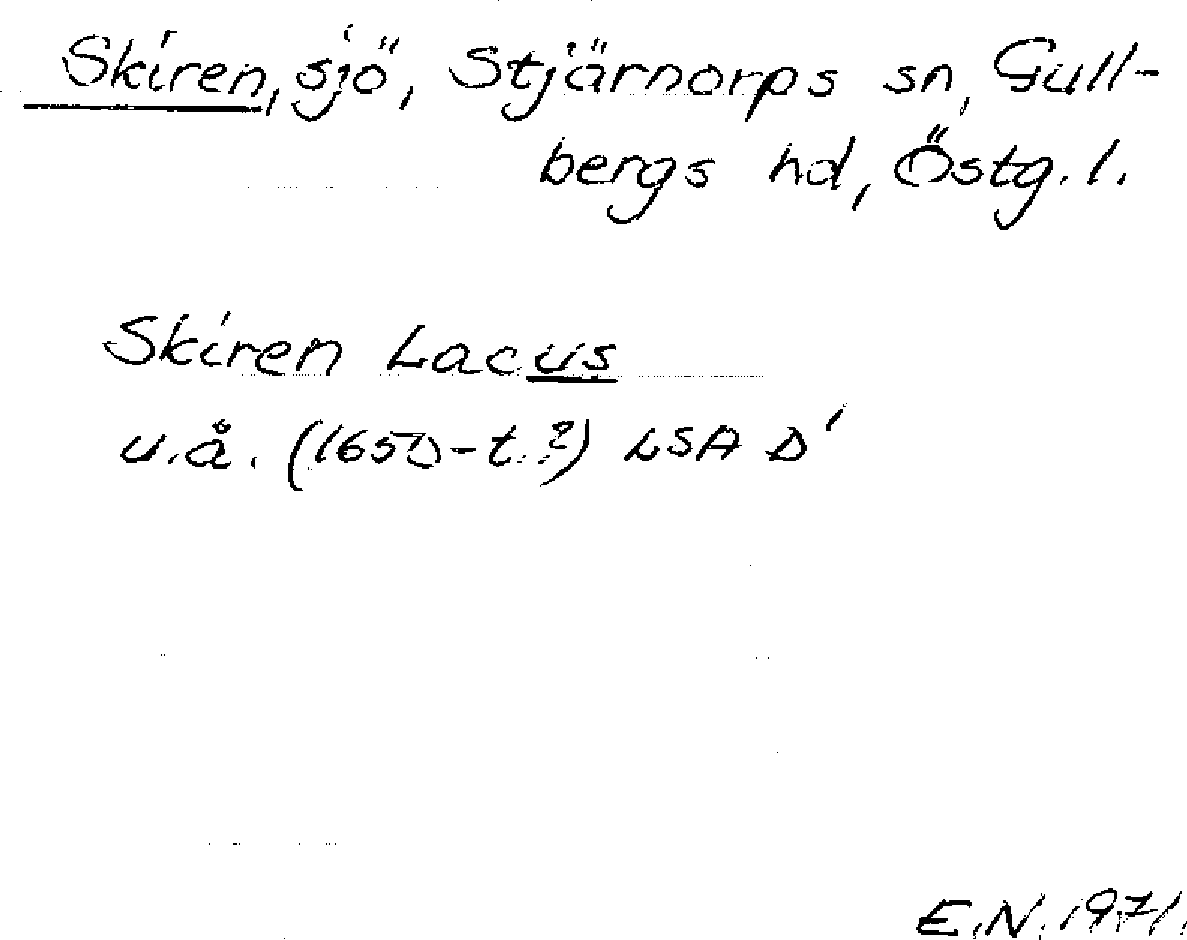 Skiren, sjö, Stjärnorps sn, Gull-
bergs hd, Östg. l.
Skiren Lacus
u.å. (1650-t.?) LSA D'
E.N. 1971.